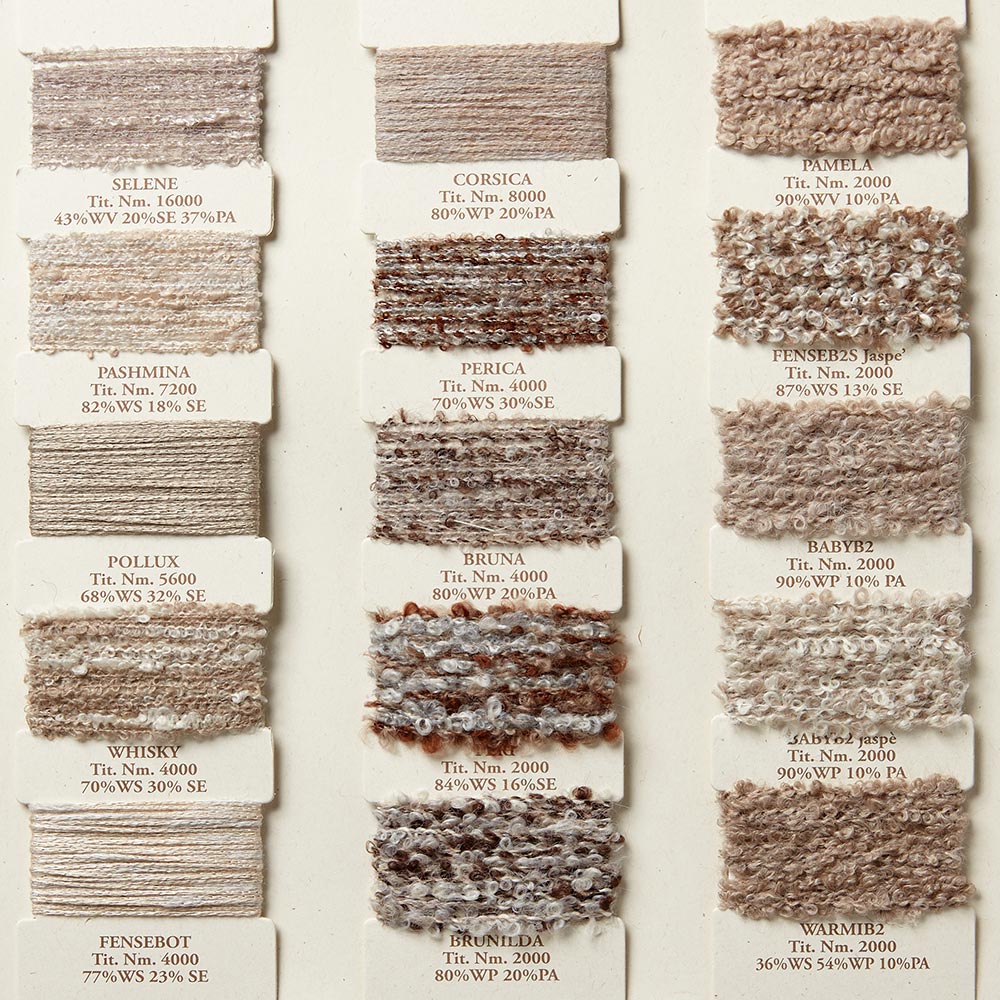 SELENE
Tit. Nm. 16000
43%WV 20%SE 37%PA
PASHMINA
Tit. Nm. 7200
82%WS 18% SE
POLLUX
Tit. Nm. 5600
68%WS 32% SE
WHISKY
Tit. Nm. 4000
70%WS 30% SE
FENSEBOT
Tit. Nm. 4000
77%WS 23% SE
CORSICA
Tit. Nm. 8000
80%WP 20%PA
PERICA
Tit. Nm. 4000
70%WS 30%SE
BRUNA
Tit. Nm. 4000
80%WP 20%PA
Tit. Nm. 2000
84%WS 16%SE
BRUNILDA
Tit. Nm. 2000
80%WP 20%PA
PAMELA
Tit. Nm. 2000
90%WV 10%PA
FENSEB2S Jaspe'
Tit. Nm. 2000
87%WS 13% SE
BABYB2
Tit. Nm. 2000
90%WP 10% PA
BAbYB2 jaspè
Tit. Nm. 2000
90%WP 10% PA
WARMIB2
Tit. Nm. 2000
36%WS 54%WP 10%PA